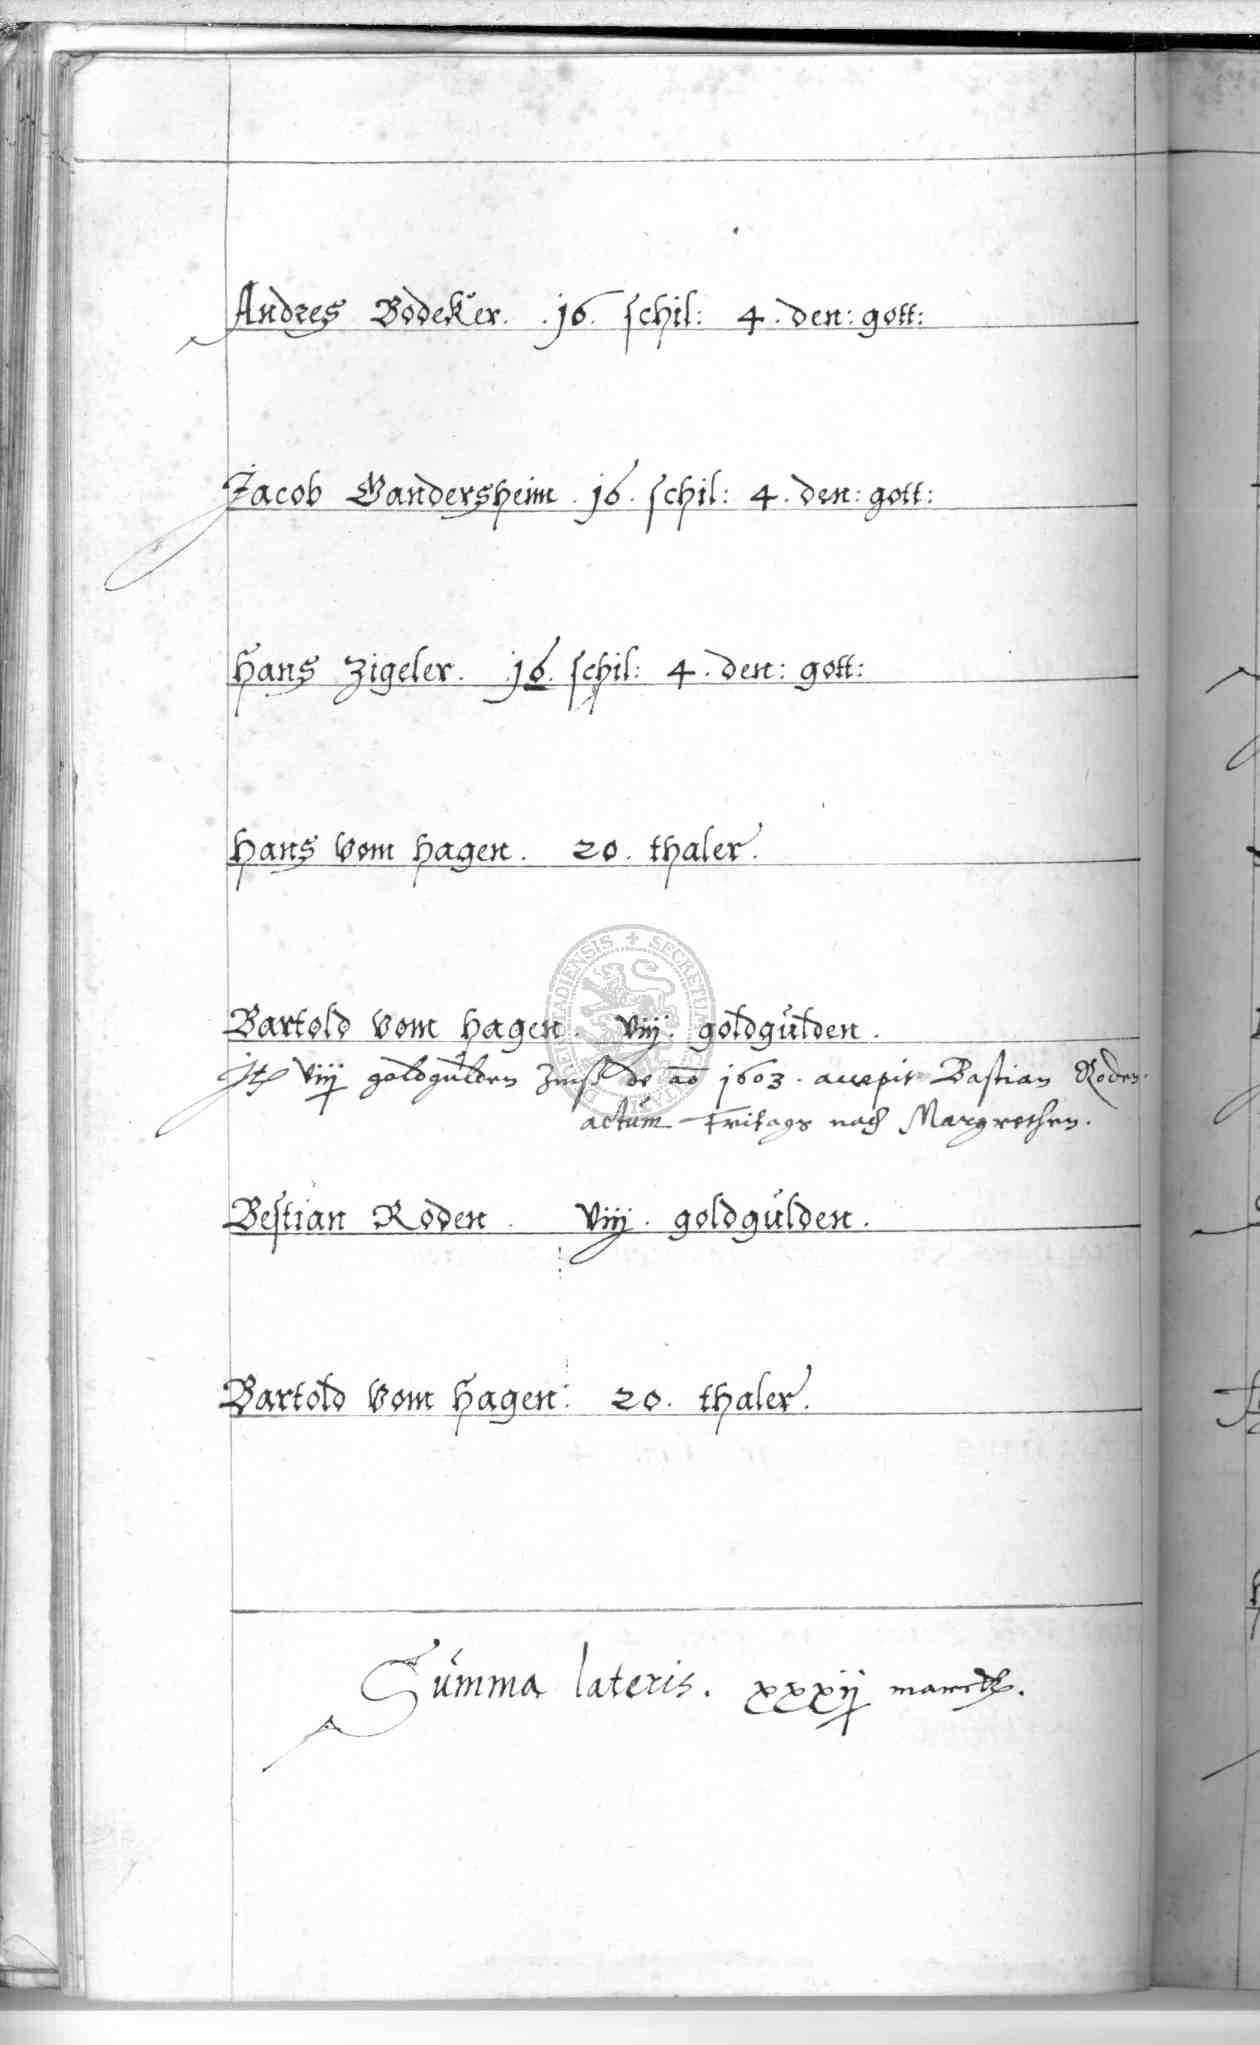 Andres Bodeker. .16. schil: 4. den: gott:
Jacob Gandersheim. 16. schil: 4. den: gott:
Hans Zigeler. .16. schil: 4. den: gott:
Hans vom Hagen. 20. thaler.
Bartold vom Hagen. viij. goldgulden.
viij goldgulden Zinß de ao 1603. accepit Bastian Roden.
actum Fritags nach Margrethen.
Bestian Roden. viij. goldgulden.
Bartold vom Hagen: 20. thaler.
Summa lateris. xxxij marck.